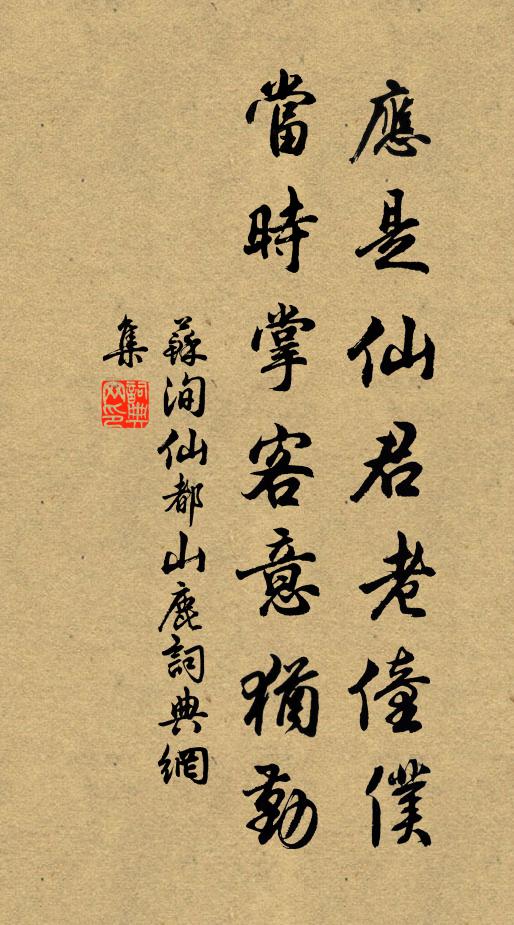 應是仙君老僮僕
當時掌客意猶勤
蘇洵仙都山鹿詞典網
集
詞典網印